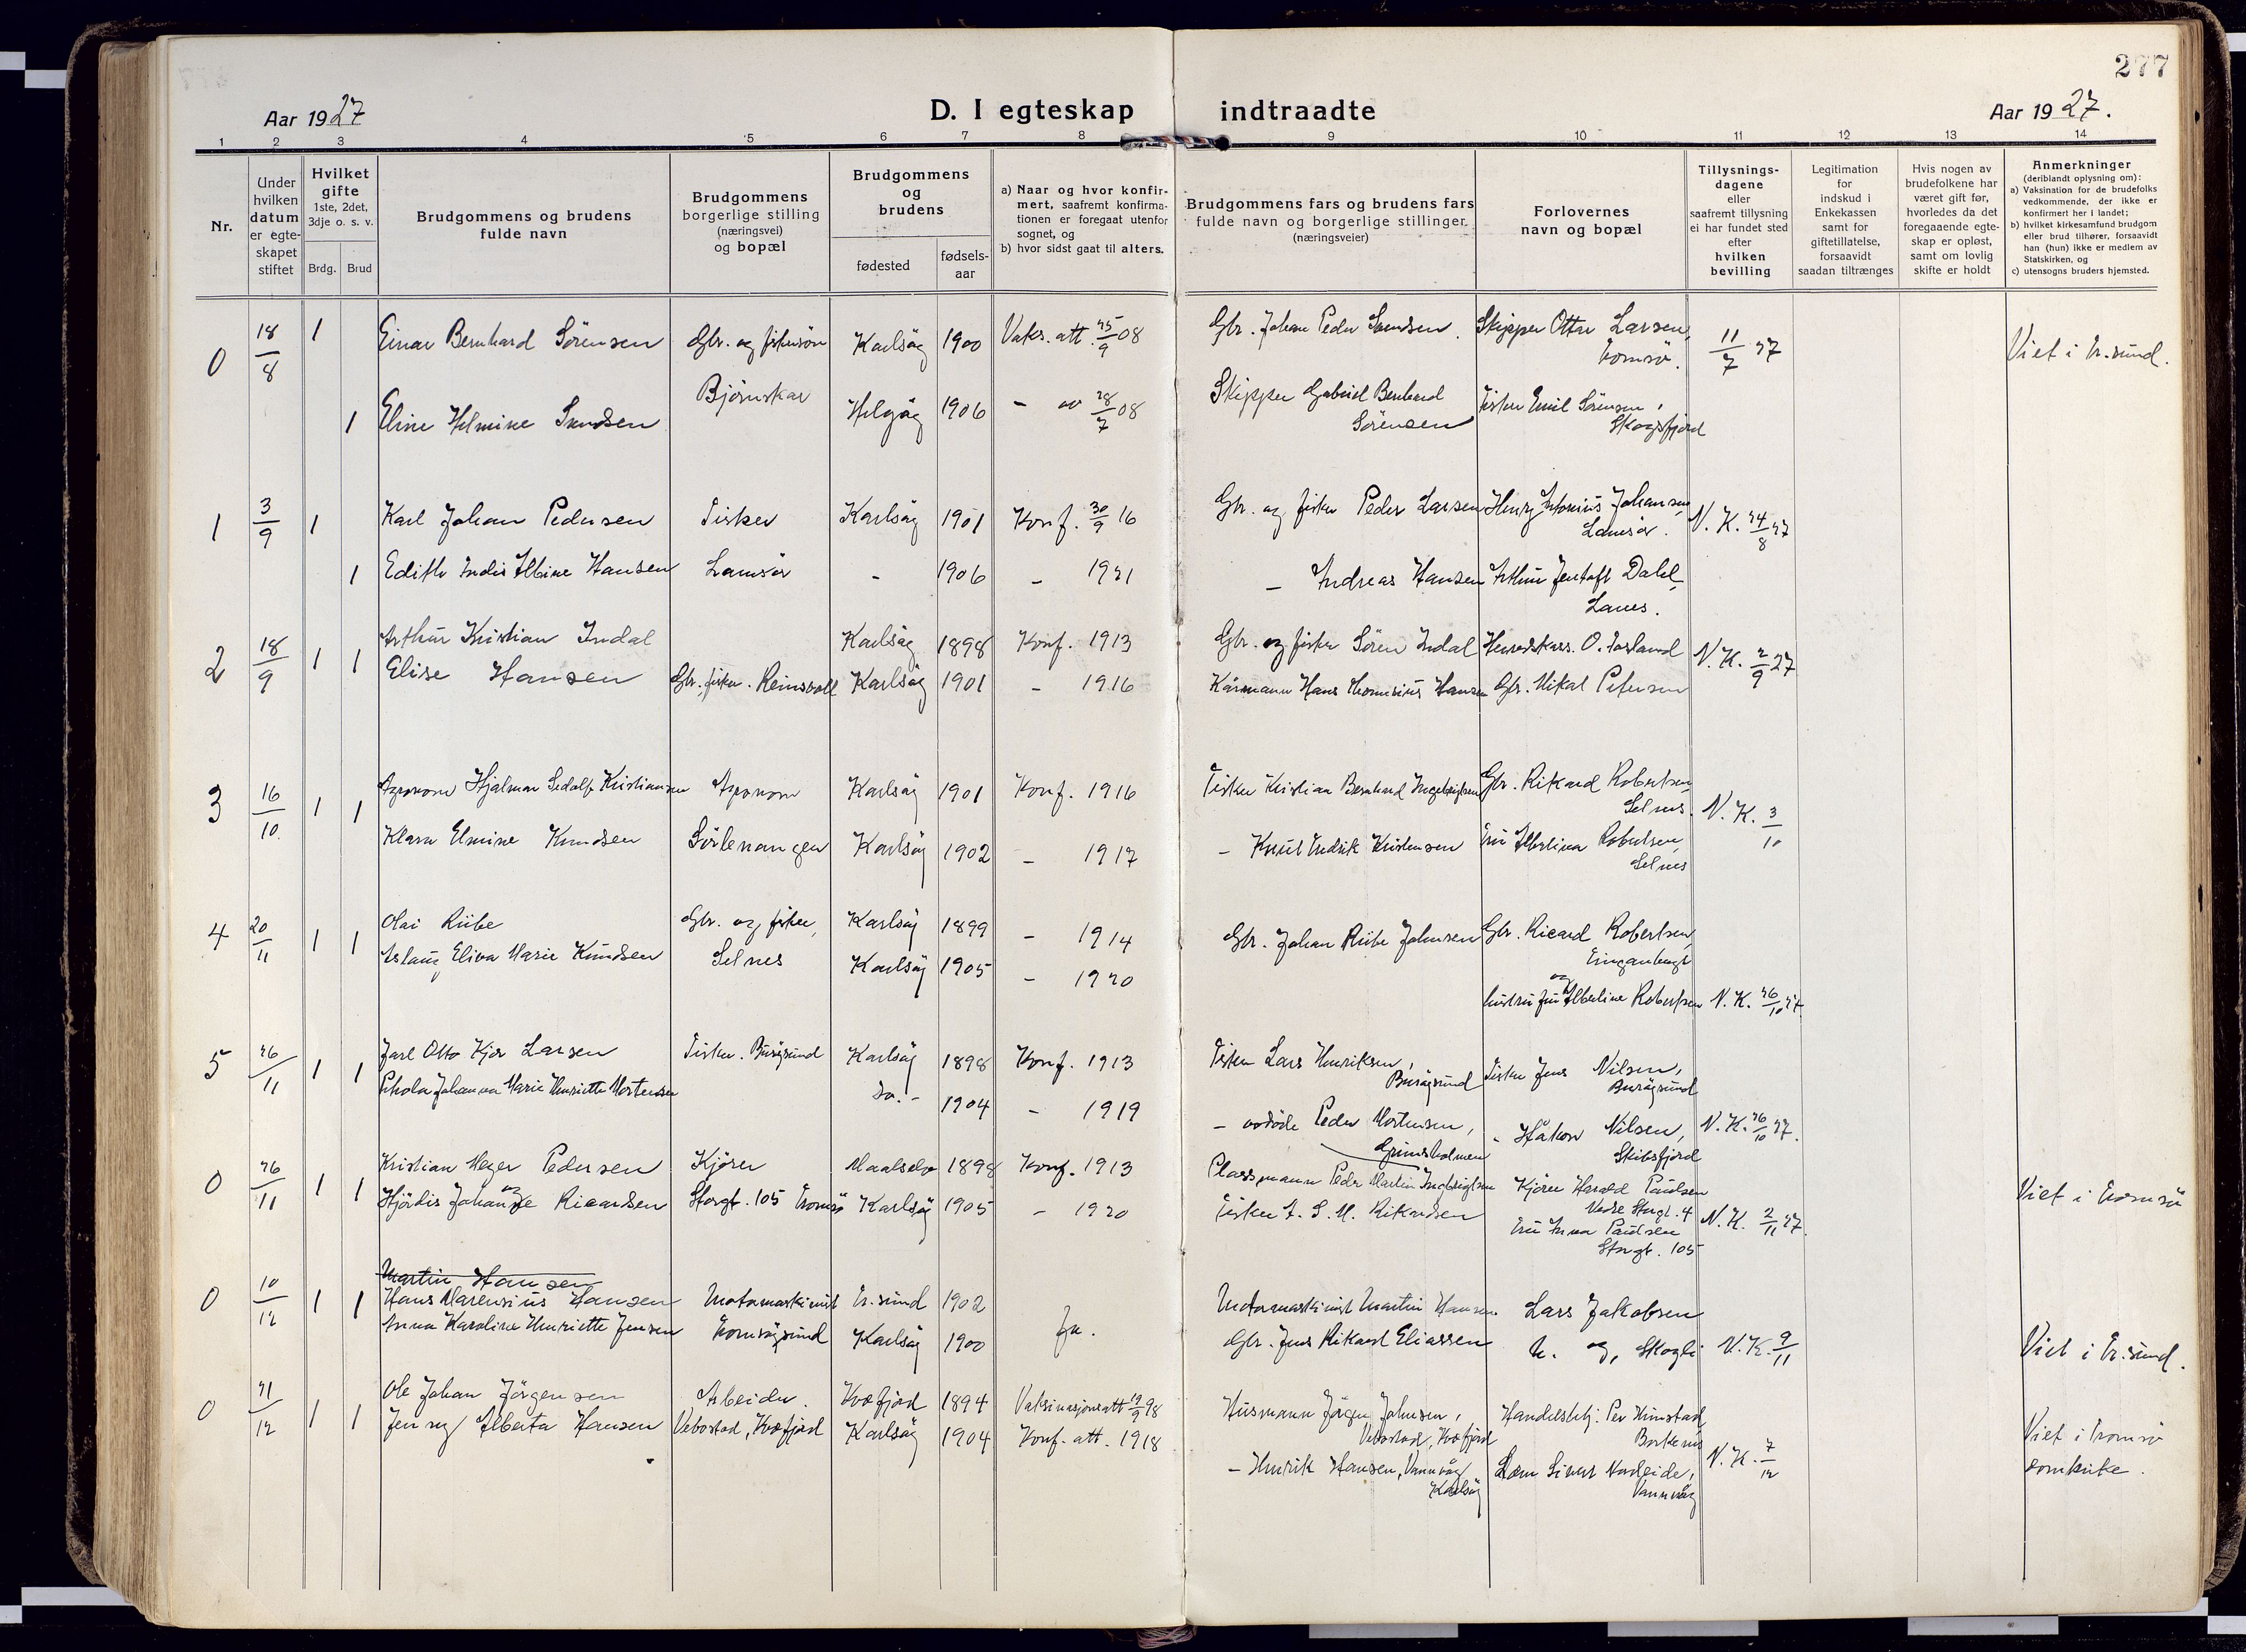 277
Aar 1927
D. I egteskap indtraadte
Aar 1927.
1 2 3 4 5 6 7 8 9 10 11 12 13 14
Nr.
Under hvilken datum er egte-skapet stiftet
Hvilket gifte
1ste, 2det, 3dje o. s. v.
Brdg. Brud
Brudgommens og brudens fulde navn
Brudgommens borgerlige stilling (næringsvei) og bopæl
Brudgommens og brudens
fødested
fødsels-aar
a) Naar og hvor konfir-mert, saafremt konfirma-tionen er foregaat utenfor sognet, og
b) hvor sidst gaat til alters.
Brudgommens fars og brudens fars fulde navn og borgerlige stillinger.
(næringsveier)
Forlovernes navn og bopæl
Tillysnings-dagene eller saafremt tillysning ei har fundet sted efter hvilken bevilling
Legitimation for indskud i Enkekassen samt for giftetillatelse, forsaavidt saadan tiltrænges
Hvis nogen av brudefolkene har været gift før, hvorledes da det foregaaende egte-skap er opløst, samt om lovlig skifte er holdt
Anmerkninger
(deriblandt oplysning om):
a) Vaksination for de brudefolks vedkommende, der ikke er konfirmert her i landet;
b) hvilket kirkesamfund brudgom eller brud tilhører, forsaavidt han (hun) ikke er medlem av Statskirken, og
c) utensogns bruders hjemsted.
0 18/8 1 Einar Bernhard Sörensen Gbr. og fiskersön Karlsöy 1900 Vaks. att. 25/9 08 Gbr. Johan Peder Skipper Ottar Larsen, Tromsö. 11/7 27 Viet i Tr.sund.
1 Eline Helmine Björnskar Helgöy 1906 - 28/7 08 Skipper Gabriel Bernhard Sörensen Fisker Emil Sörensen, Skogsfjord
1 3/9 1 Karl Johan Pedersen Fisker Karlsöy 1901 Konf. 30/9 16 Gbr. og fisker Peder Larsen Henry Antonius Johansen, V. K. 24/8 27
1 Edith Indis Albine Hansen - 1906 - 1921 - Andreas Hansen Arthur Jentoft Dahl,
2 18/9 1 1 Arthur Kristian Indal Karlsöy 1898 Konf. 1913 Gbr. og fisker Sören Indal V. K. 2/9 27
Elise Hansen Gbr. fisker. Reinsvoll Karlsöy 1901 - 1916 Gbr. Mikal Petersen
3 16/10. 1 1 Agronom Hjalmar Kristiansen Agronom Karlsöy 1901 Konf. 1916 Fisker Kristian Bernhard Ingebrigtsen Gbr. Rikard Robertsen, Selnes. V. K. 3/10
Klara Elmine Knudsen Sörlenangen Karlsöy 1902 - 1917 - Knut Fredrik Kristensen Fru Albertina Robertsen, Selnes
4 20/11 1 1 Olai Rübe Gbr. og fisker, Karlsöy 1899 - 1914 Gbr. Johan Rübe Johnsen Gbr. Ricard Robertsen,
Aslaug Elina Marie Knudsen Selnes Karlsöy 1905 - 1920
og hustru fru Albertine Robertsen V. K. 26/10 27.
5 26/11 1 1 Jarl Otto Kjær Larsen Fisker. Burøysund Karlsöy 1898 Konf. 1913 Fisker Lars Henriksen, Burøysund Fisker Jens Nilsen, Burøysund
Johanna Marie Henriette Mortensen do. - 1904 - 1919 - avdöde Peder Mortensen, Grimsholmen - Håkon Nilsen, Skibsfjord V. K. 26/10 27.
0 26/11 1 1 Kristian Meyer Pedersen Kjörer Maalselv 1898 Konf. 1913 Plassmann Peder Martin Ingebrigtsen Kjörer Harald Paulsen Viet i Tromsö
Hjördis Johanne Ricardsen Storgt. 105 Tromsö Karlsöy 1905 - 1920 Fisker Rikardsen Fru Anna Paulsen Storgt. 105 V. K. 2/11 27.
Martin Hansen
0 10/12 1 1 Hans Marensius Hansen Motormaskinist Tr.sund 1902 Ja. Motormaskinist Martin Hansen Lars Jakobsen
Anna Karoline Henriette Jensen Tromsöysund Karlsöy 1900 Gbr. Jens Rikard Eliassen og, Skogli V. K. 9/11 Viet i Tr.sund.
0 21/12 1 1 Ole Johan Jörgensen Arbeider. Kvæfjord 1894 Vaksinasjonsatt 19/9 98 Husmann Jörgen Johnsen, Vebostad, Kvæfjord Handelsbetj. Per Kimstad, Borkenes Viet i Tromsö domkirke.
Jenny Alberta Hansen Vebostad, Kvæfjord Karlsöy 1904 Konf. att. 1918 - Henrik Hansen, Vannvåg Karlsöy Nordeide, Vannvåg V. K. 7/12